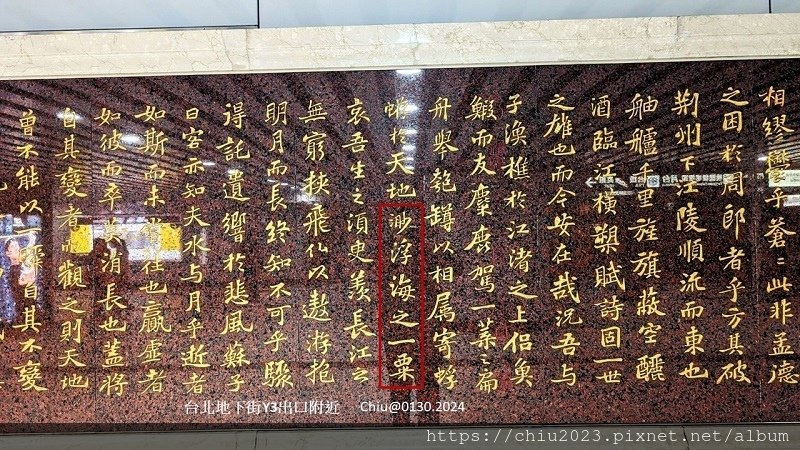 相繆鬱乎蒼〻此非孟德
之困於周郎者乎方其破
荆州下江陵順流而東也
舳艫千里旌旗蔽空釃
酒臨江橫槊賦詩固一世
之雄也而今安在哉況吾与
子漁樵於江渚之上侶魚
鰕而友麋鹿駕一葉之扁
舟舉匏罇以相屬寄蜉
蝣於天地渺浮海之一粟
哀吾生之須臾羨長江之
無窮挾飛仙以遨游抱
明月而長終知不可乎驟
得託遺響於悲風蘇子
曰客亦知夫水与月乎逝者
如斯而未嘗往也贏虛者
如彼而卒莫消長也蓋將
自其變者而觀之則天地
曾不能以一瞬自其不變
台北地下街Y3出口附近 Chiu@0130.2024
https://chiu2023.pixnet.net/album